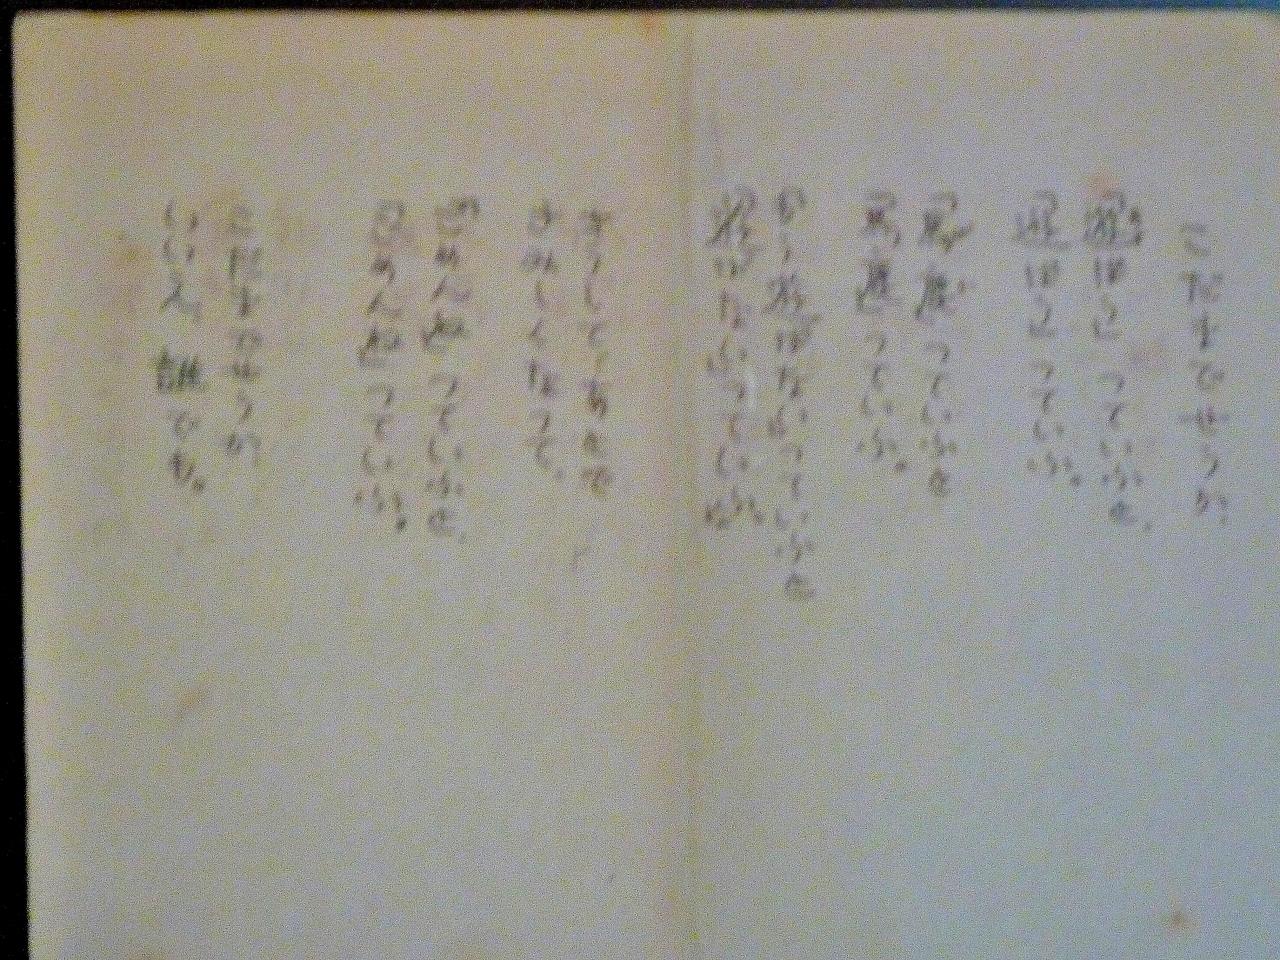 こだまでせうか
「遊ばう」っていふと、
「遊ばう」っていふ。
「馬鹿」っていふと
「馬鹿」っていふ。
「もう遊ばない」っていふと
「遊ばない」っていふ。
さうして、あとで
さみしくなって、
「ごめんね」っていふと、
「ごめんね」っていふ。
こだまでせうか
いいえ、誰でも。